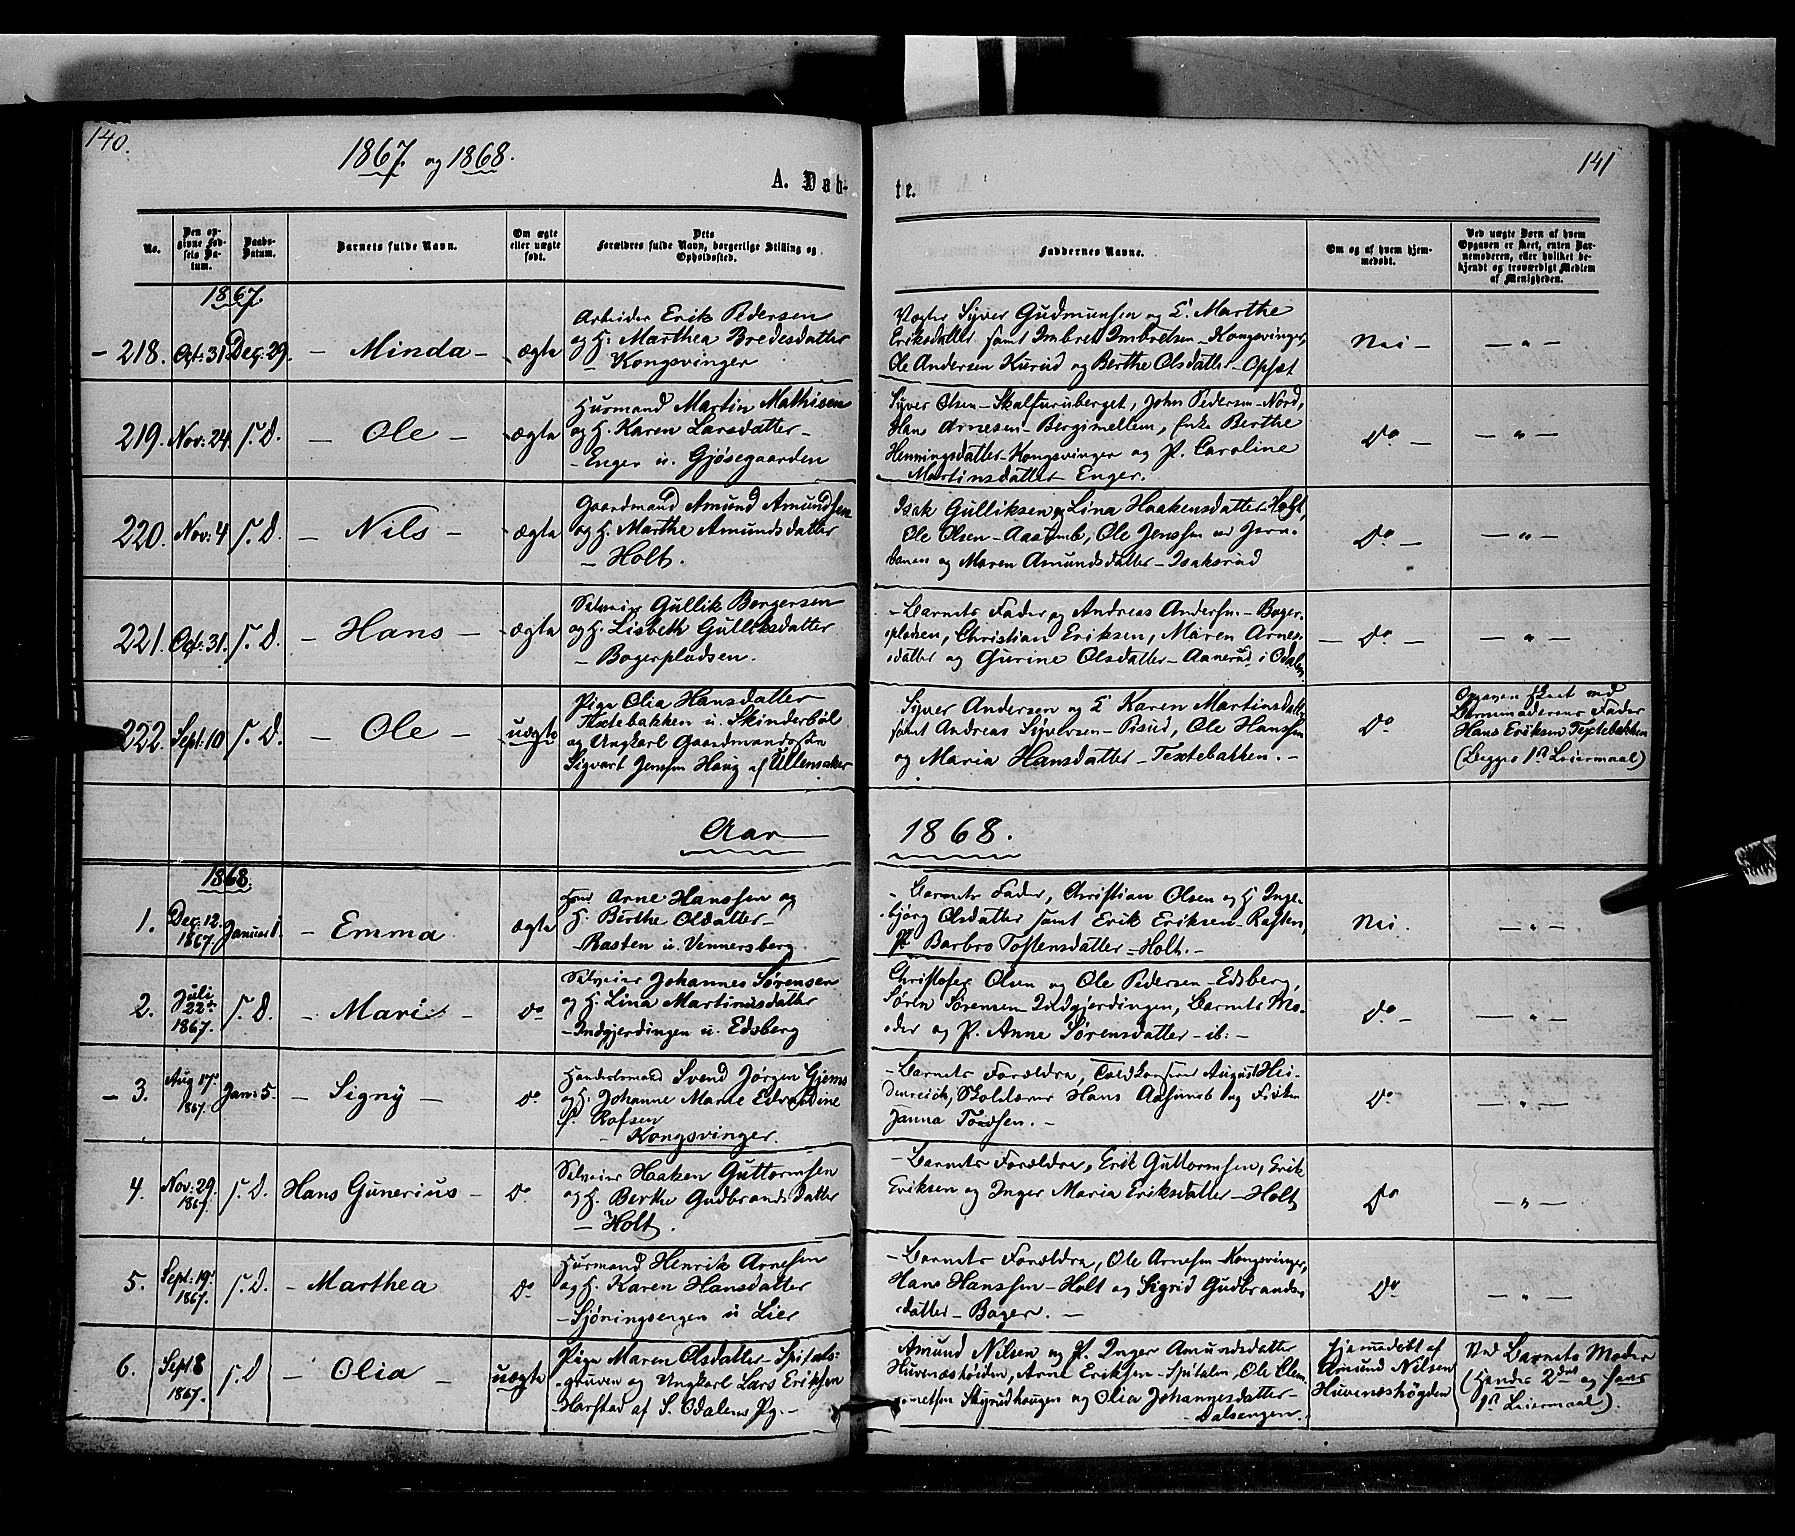 140.
1867 og 1868.
A. Døb-
No.
Den opgivne Fødsels Datum.
Daabs-Datum.
Barnets fulde Navn.
Om ægte eller uægte født.
Dets Forældres fulde Navn, borgerlige Stilling og Opholdssted.
1867.
- 218. Oct: 31. Dec: 29. - Minda - ægte
Arbeider Erik Pedersen
og H. Marthea Bredesdatter
- Kongsvinger
219. Nov: 24. S. D. - Ole - ægte
Husmand Martin Mathisen
og H. Karen Larsdatter -
- Enger u. Gjøsegaarden
220. Nov: 4 S. D. - Nils - ægte
Gaardmand Amund Amundsen
og H. Marthe Amundsdatter
- Holt.
221. Oct: 31. S. D. - Hans - ægte
Selveier Gullik Bergersen
og H. Lisbeth Gulliksdatter
- Bogerpladsen.
222. Sept: 10 S. D. - Ole - uægte
Pige Olia Hansdatter
Textebakken u. Skinderbøl
og Ungkarl Gaardmandssøn
Sigvart Jenssen Haug af Ullensaker
Aar
1868.
1. Dec: 12. 1867. Januar 1. - Emma ægte
Arne Hanssen og
H. Berthe Olsdatter -
- Rasten u. Vennersberg
2. Juli 22de 1867. S. D. - Mari - do
Selveier Johannes Sørensen
og H. Lina Martinusdatter
- Indgjerdingen u. Edsberg
- 3. Aug 17. 1867. Jan: 5. - Signy - do
Handelsmand Svend Jørgen Gjems
og H. Johanne Marie Edvardine
f. Rofsen
- Kongsvinger.
4. Nov: 29. 1867. S. D. Hans Gunerius - do
Selveier Haaken Guttormsen
og H. Berthe Gudbrandsdatter
- Holt.
5. Sept: 19. 1867. S. D. - Marthea do
Husmand Henrik Arnesen
og H. Karen Hansdatter
- Sjøningsengen u Lier
6. Sept 8 1867. S. D - Olia - uægte
Pige Maren Olsdatter - Spitals-
gruven og Ungkarl Lars Eriksen
Harstad af S. Odalens Pg. -
141
te.
Faddernes Navne.
Om og af hvem hjemmedøbt.
Ved uægte Børn af hvem Opgaven er skeet, enten Barnemoderen, eller hvilket bekjendt og troværdigt Medlem af Menigheden.
Vogter Syver Gudmunsen og E. Marthe
Eriksdatter samt Imbret Imbretsen - Kongsvinger,
Ole Andersen Kurud og Berthe Olsdatter - Opsæt
Nei - - " -
Syver Olsen - Skalfuruberget, John Pedersen - Nord,
Hans Arnesen - Bergimellem, Enke Berthe
Henningsdatter - Kongsvinger og P. Caroline
Martinsdatter Enger.
Do - - " -
Isak Gulliksen og Lina Haakensdatter - Holt,
Ole Olsen - Aasumb, Ole Jenssen ved Jern-
banen og Maren Amundsdatter - Isaksrud
Do - - " -
- Barnets Fader og Andreas Andersen - Boger-
pladsen, Christian Eriksen, Maren Arnes-
datter og Gurine Olsdatter - Aanerud i Odalen
- Do - - " -
Syver Andersen og E Karen Martinsdatter
samt Andreas Syversen - Pisud, Ole Hanssen
og Maria Hansdatter - Textebakken. -
Do
Opgaven skeet ved
Barnemoderens Fader
Hans Eriksen Textebakken
(Begges 1ste Leiermaal)
1868.
- Barnets Fader, Christian Olsen og H Inge-
bjørg Olsdatter samt Erik Eriksen - Rasten,
P. Barbro Tostensdatter - Holt. -
Nei. - " -
Christofer Olsen og Ole Pedersen - Edsberg,
Søren Sørensen Indgjerdingen, Barnets Mo-
der og P. Anne Sørensdatter - ib: -
do - - " -
- Barnets Forældre, Toldkasserer August Hei-
denreich, Skolelærer Hans Aasumb og Frøken
Janna Tordsen. -
Do - " -
- Barnets Forældre, Erik Guttormsen, Erik
Eriksen og Inger Maria Eriksdatter - Holt
Do - " -
- Barnets Forældre, Ole Arnesen Kongsvinger,
Hans Hanssen - Holt og Sigrid Gudbrands-
datter - Boger. -
Do - " -
Amund Nilsen og P. Inger Amundsdatter
Huvenæshøiden, Arne Eriksen - Spitalen, Ole Clem-
metsen Skyrudhaugen og Olia Johannesdatter -
- Dalsengen.
Hjemmedøbt af
Amund Nilsen
Huvenæshøgden
Ved Barnets Moder
(Hendes 2det og hans
1ste Leiermaal).